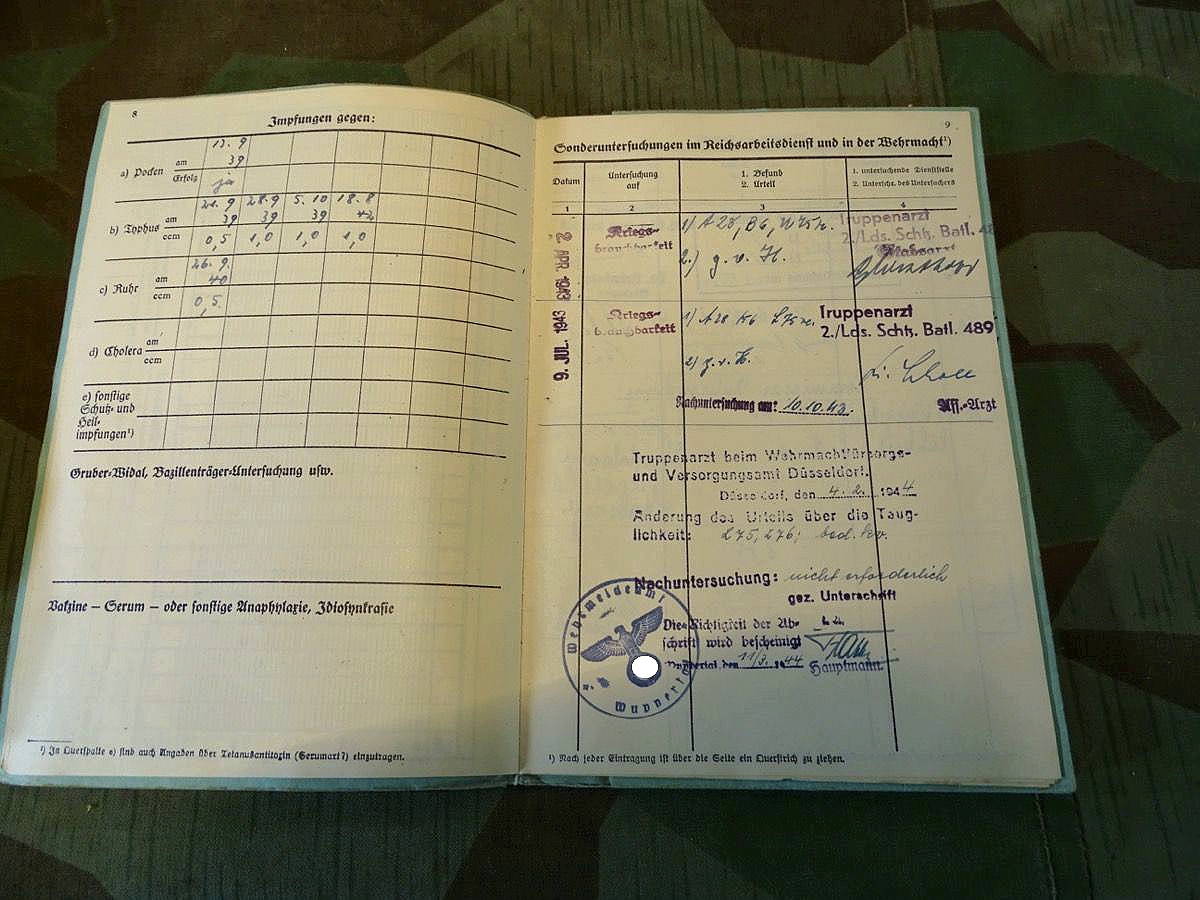 8
Impfungen gegen:
13. 9
a) Pocken am 39
Erfolg ja
21. 9 28. 9 5. 10 18. 8
b) Typhus am 39 39 39 42
ccm 0,5 1,0 1,0 1,0
26. 9.
c) Ruhr am 40
ccm 0,5
d) Cholera am
ccm
e) sonstige
Schutz- und
Heil-
impfungen¹)
Gruber-Widal, Bazillenträger-Untersuchung usw.
Vakzine – Serum – oder sonstige Anaphylaxie, Idiosynkrasie
¹) In Querspalte e) sind auch Angaben über Tetanusantitoxin (Serumart?) einzutragen.
9
Sonderuntersuchungen im Reichsarbeitsdienst und in der Wehrmacht¹)
Datum
Untersuchung
auf
1. Befund
2. Urteil
1. untersuchende Dienststelle
2. Untersch. des Untersuchers
1 2 3 4
2 APR. 1943
Kriegs-
brauchbarkeit
1) A 25, B 6,
2.) g. v. H.
Truppenarzt
2./Lds. Schtz. Batl. 48
9. JUL. 1943
Kriegs-
brauchbarkeit
1)
2) g. v. H.
Truppenarzt
2./Lds. Schtz. Batl. 489
Nachuntersuchung am: 10.10.43.
Ass.-Arzt
Truppenarzt beim Wehrmachtfürsorge-
und Versorgungsamt Düsseldorf.
Düsseldorf, den 4. 2. 1944
Änderung des Urteils über die Taug-
lichkeit: L75, L76; bed. kv.
Nachuntersuchung: nicht erforderlich
gez. Unterschrift
Die Richtigkeit der Ab-
schrift wird bescheinigt
Wuppertal den 11/3. 1944
Hauptmann.
Wehrmeldeamt
Wuppertal
¹) Nach jeder Eintragung ist über die Seite ein Querstrich zu ziehen.